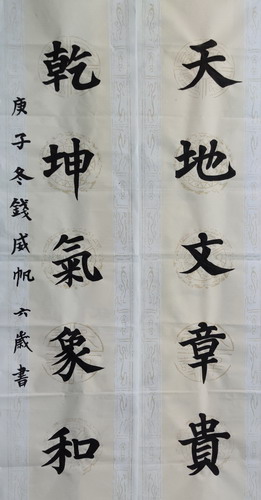 天地文章貴
乾坤氣象和
庚子冬錢成帆六歲書